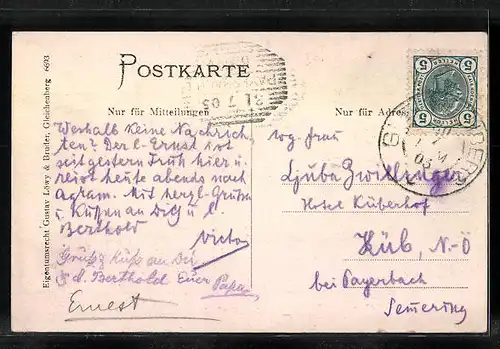 POSTKARTE
21 7 05
5 5
5 5
Nur für Mitteilungen
Nur für Adresse
Eigentumsrecht Gustav Löwy & Bruder, Gleichenberg 6693
Weshalb keine Nachrich-
ten? Der l. Ernst ist
seit gestern Früh hier u.
reist heute abends nach
Agram. Mit herzl. Grüßen
u. Küssen an Dich u. l.
Berthold
Victor
Gruß & Kuß an Dich
& d. Berthold Euer Papa
Ernest
Frau
Ljuba Zwillinger
Hotel Küberhof
Küb, N-Ö
bei Payerbach
Semering